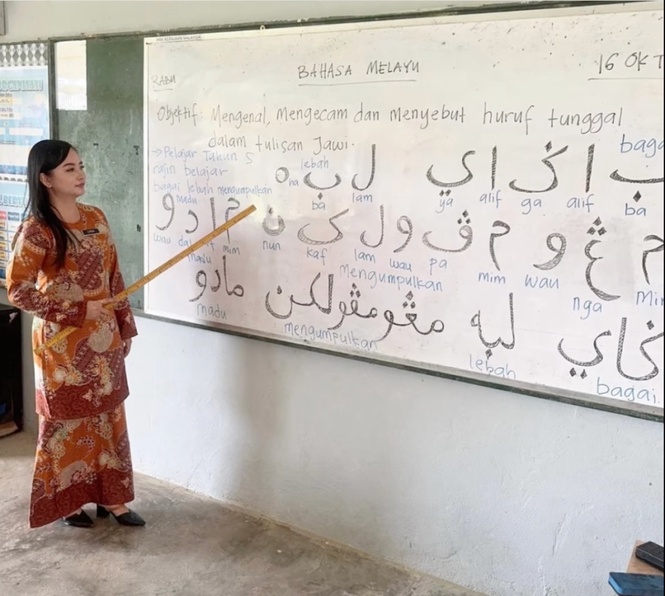 RABU
BAHASA MELAYU
16 OKT
Objektif: Mengenal, mengecam dan menyebut huruf tunggal
dalam tulisan Jawi.
→ Pelajar Tahun 5
rajin belajar
bagai lebah mengumpulkan
madu
lebah
ب ا ݢ ا ي ل ب ه
ha ba lam ya alif ga alif ba
م ڠ و م ڤ و ل ک ن م ا د و
wau mim nun kaf lam wau pa mim wau nga Mi
madu
mengumpulkan
ݢاي لبه مڠومڤولکن مادو
madu mengumpulkan lebah bagai.